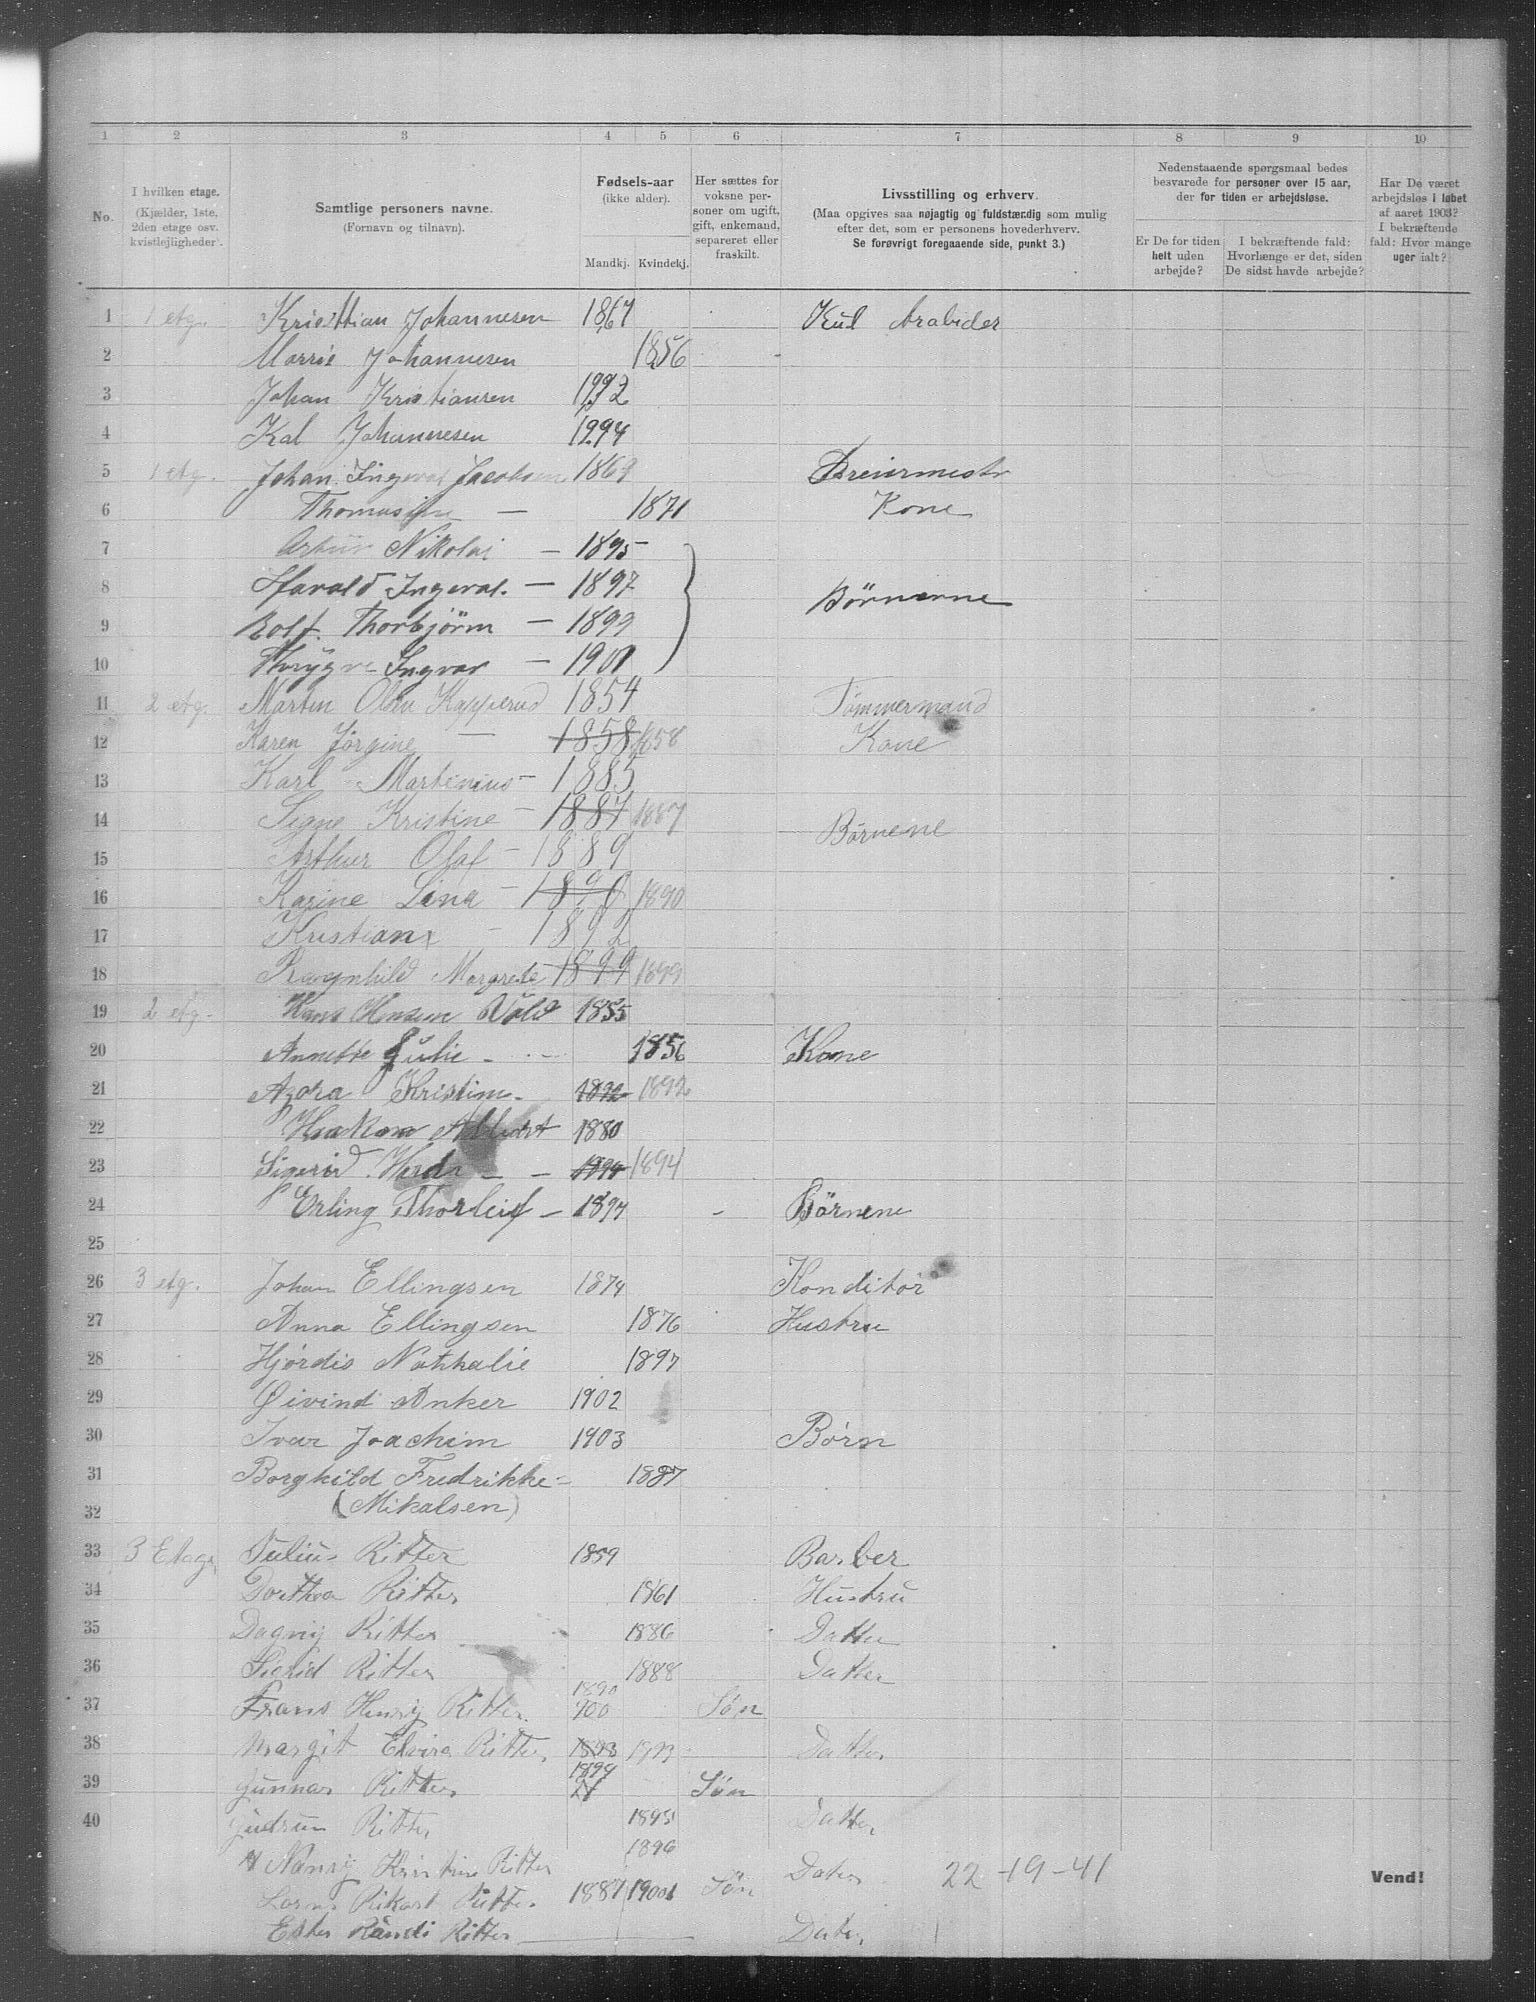 1 2 3 4 5 6 7 8 9 10
No.
I hvilken etage.
(Kjælder, 1ste,
2den etage osv.
kvistlejligheder).
Samtlige personers navne.
(Fornavn og tilnavn).
Fødsels-aar
(ikke alder).
Mandkj. Kvindekj.
Her sættes for
voksne per-
soner om ugift,
gift, enkemand,
separeret eller
fraskilt.
Livsstilling og erhverv.
(Maa opgives saa nøjagtig og fuldstændig som mulig
efter det, som er personens hovederhverv.
Se forøvrigt foregaaende side, punkt 3.)
Nedenstaaende spørgsmaal bedes
besvarede for personer over 15 aar,
der for tiden er arbejdsløse.
Er De for tiden
helt uden
arbejde?
I bekræftende fald:
Hvorlænge er det, siden
De sidst havde arbejde?
Har De været
arbejdsløs i løbet
af aaret 1903?
I bekræftende
fald: Hvor mange
uger ialt?
1 1 etg. Kristtian Johannesen 1867 Kul Arabider
2 Marrie Johannesen 1856
3 Johan Kristiansen
4 Kal Johannesen
5 1 etg. Johan Ingeval Jacobsen 1869 Dreiermestr
6 Thomasine — 1871 Kone
7 Artur Nikolai — 1895
8 Harald Ingeval. — 1897 Børnerne
9 Rolf. Thorbjörm — 1899
10 Thrygve Ingvar — 1901
11 2 etg. Martin Olsen Kapperud 1854 Tømmermand
12 Karen Jørgine — 1858 1858 Kone
13 Karl Martinius — 1885
14 Signe Kristine — 1887 1887 Børnene
15 Arthur Olaf — 1889
16 Karine Lina — 1890 1890
17 Kristian — 1892
18 Ragnhild Margrete 1899 1899
19 2 etg. Hans Hansen Vold 1855
20 Annette Julie — 1856 Kone
21 Agdra Kristine 1892 1892
22 Haakon Albert 1880
23 Sigerid Herda — — 1894 1894
24 Erling Thorleif — 1897 - Börnene
25
26 3 etg. Johan Ellingsen 1874 Konditor
27 Anna Ellingsen 1876 Hustru
28 Hjørdis Nathhalie 1897
29 Øivind Anker 1902
30 Ivar Joachim 1903 Børn
31 Borghild Fredrikke - 1887
32 (Mikalsen)
33 3 Etage Julius Ritter 1859 Barber
34 Dorthea Ritter 1861 Hustru
35 Dagny Ritter 1886 Datter
36 Sigrid Ritter 1888 Datter
37 Frans Henry Ritter 1890 Søn
38 Margit Elvira Ritter 1893 1893 Datter
39 Gunnar Ritter 1894 Søn
40 Gudrun Ritter 1895 Datter
Nansy Kristine Ritter 1896 Dater 22 -19 -41
Rikart Ritter 1887 1900 Søn
Ester Randi Ritter Dater
Vend!